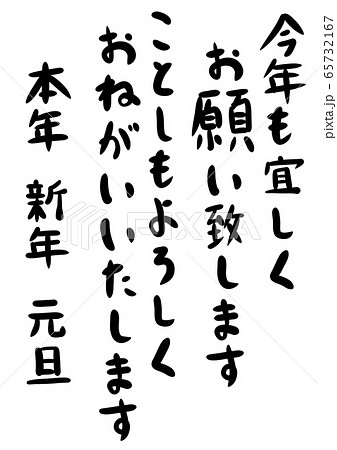 今年も宜しく
お願い致します
ことしもよろしく
おねがいいたします
本年 新年 元旦
PIXTA
pixta.jp - 65732167